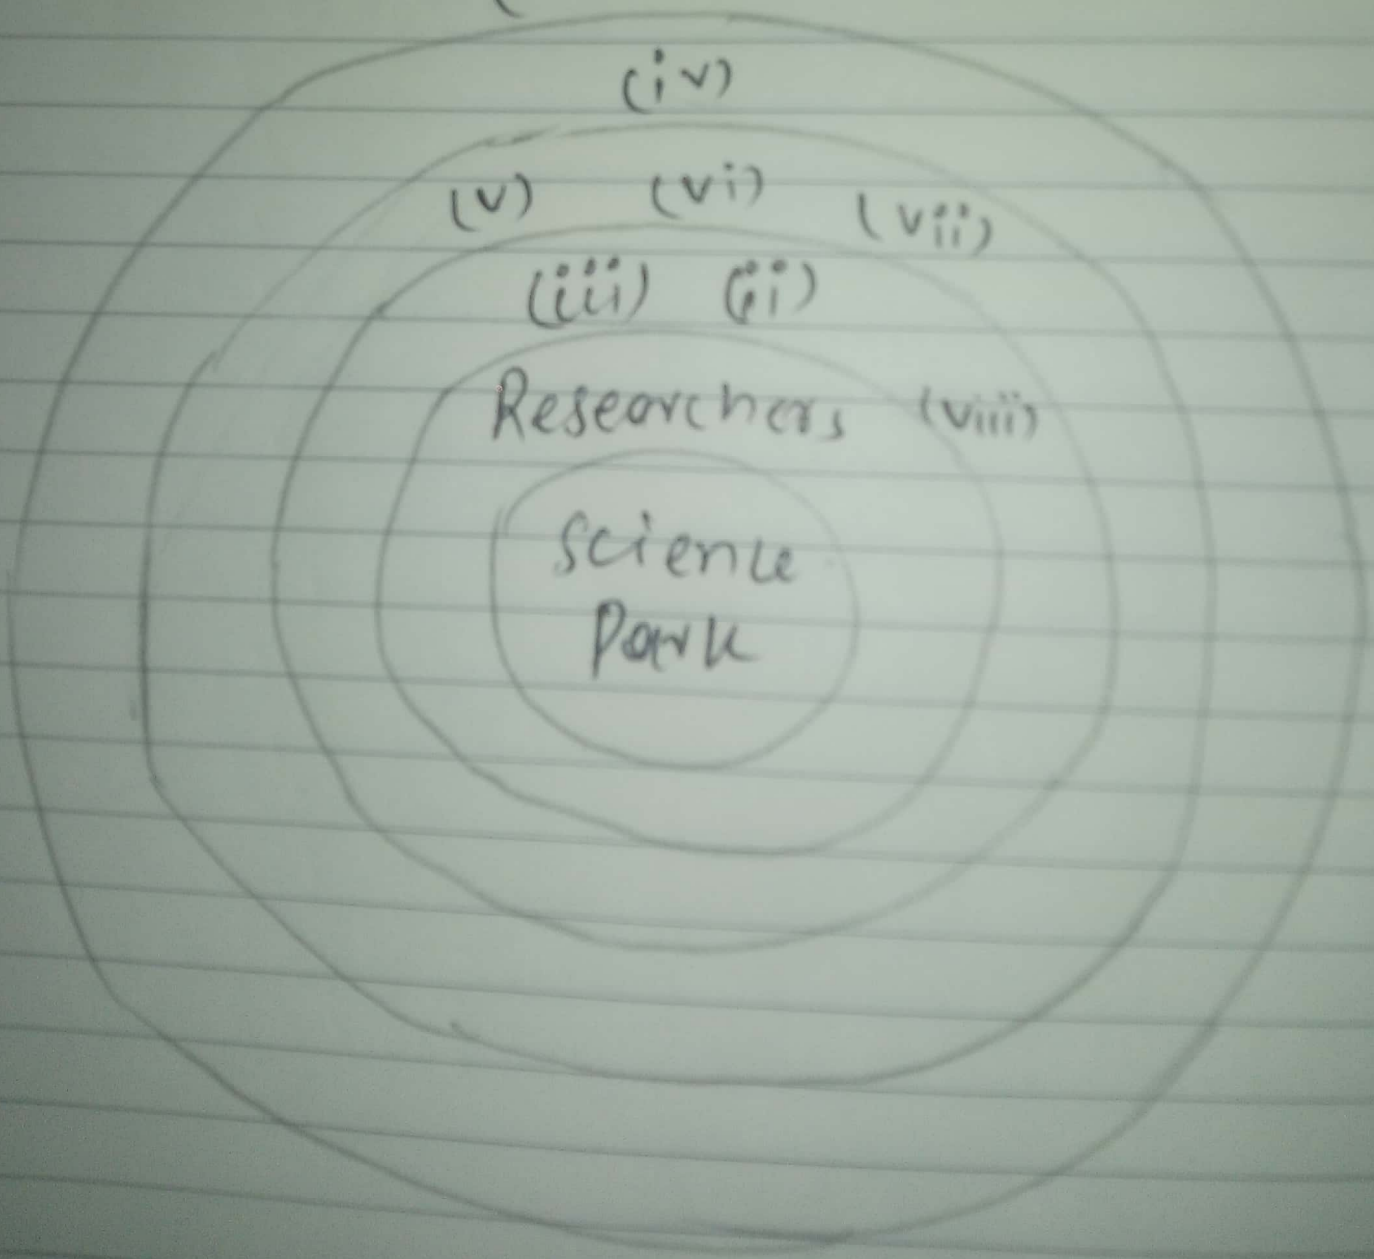 (iv)
(v) (vi) (vii)
(iii) (ii)
Researchers (viii)
Science
Park